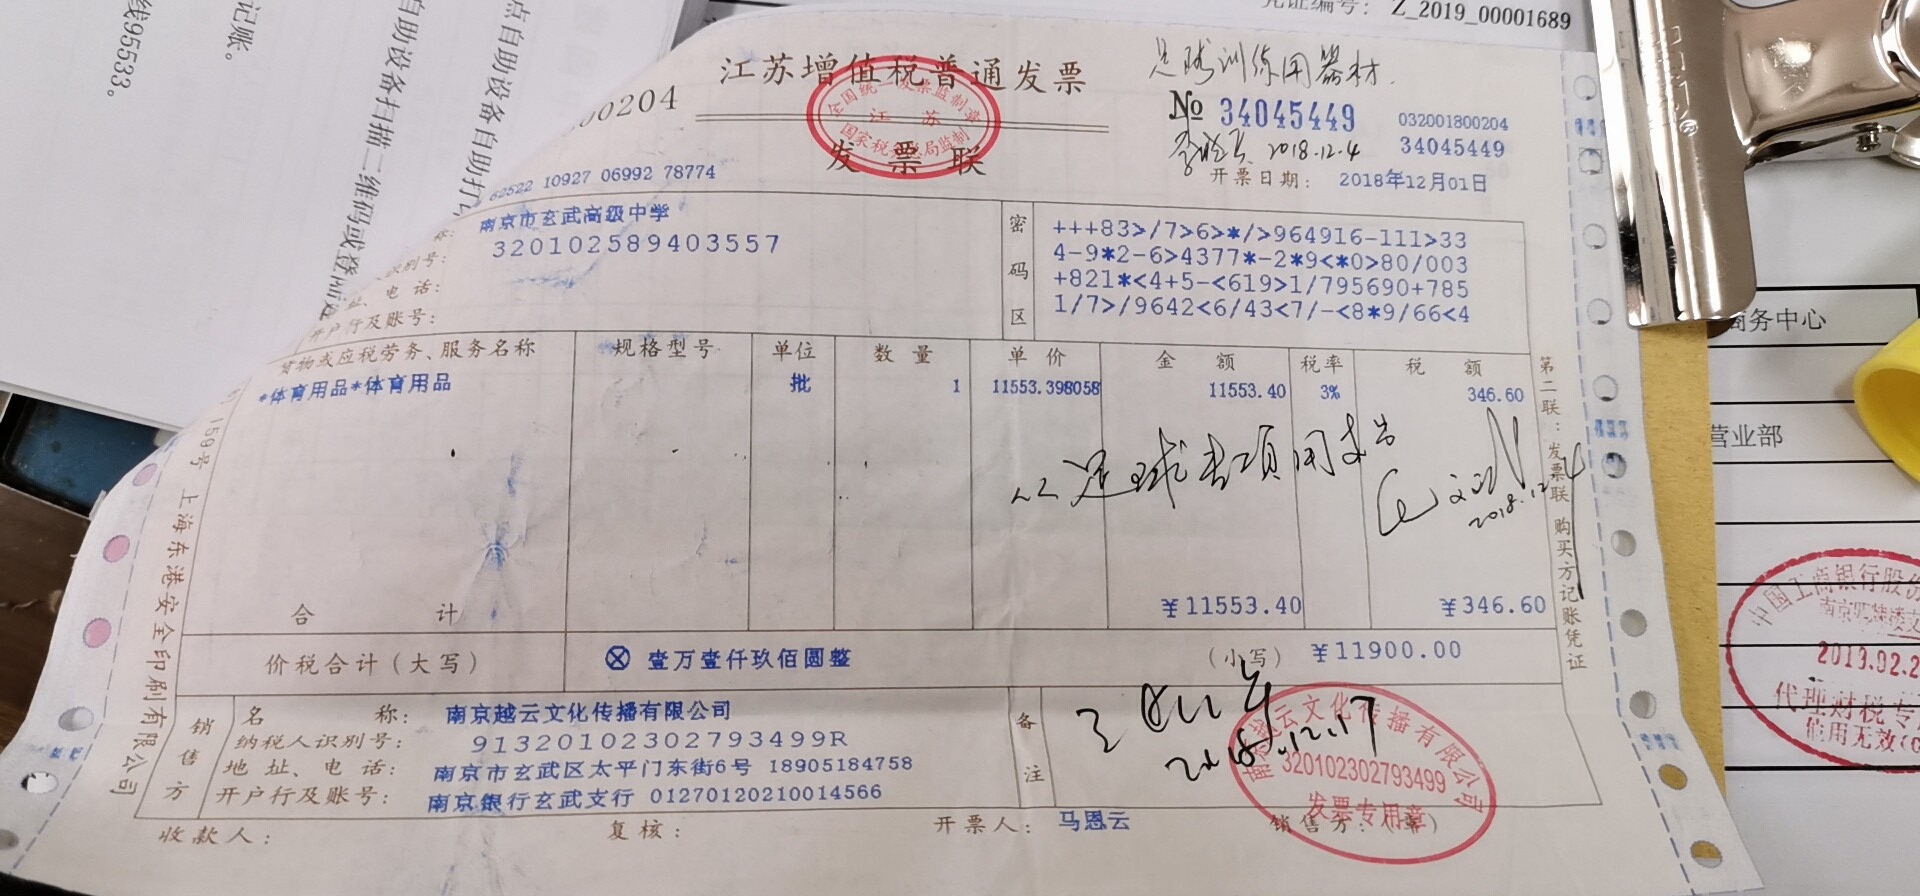 凭证编号： Z_2019_00001689
记账。
点自助设备自助打
自助设备扫描二维码或登
线95533。
足球训练用器材
江苏增值税普通发票
00204
全国统一发票监制章
江 苏
国家税务总局监制
发 票 联
№ 34045449
032001800204
34045449
2018.12.4
开票日期： 2018年12月01日
62522 10927 06992 78774
南京市玄武高级中学
320102589403557
识别号：
址、电话：
开户行及账号：
密码区
+++83>/7>6>*/>964916-111>33
4-9*2-6>4377*-2*9<*0>80/003
+821*<4+5-<619>1/795690+785
1/7>/9642<6/43<7/-<8*9/66<4
货物或应税劳务、服务名称 规格型号 单位 数量 单价 金额 税率 税额
*体育用品*体育用品 批 1 11553.398058 11553.40 3% 346.60
以足球专项用支出
2018.12.4
合 计 ¥11553.40 ¥346.60
价税合计（大写） ⊗ 壹万壹仟玖佰圆整 （小写） ¥11900.00
销售方
名 称： 南京越云文化传播有限公司
纳税人识别号： 91320102302793499R
地 址、电 话： 南京市玄武区太平门东街6号 18905184758
开户行及账号： 南京银行玄武支行 01270120210014566
备注
2018.12.17
南京越云文化传播有限公司
320102302793499
发票专用章
收款人： 复核： 开票人： 马恩云 销售方：（章）
第二联：发票联 购买方记账凭证
159号 上海东港安全印刷有限公司
商务中心
营业部
中国工商银行股份
2019.02.2
代理财税专
信用无效